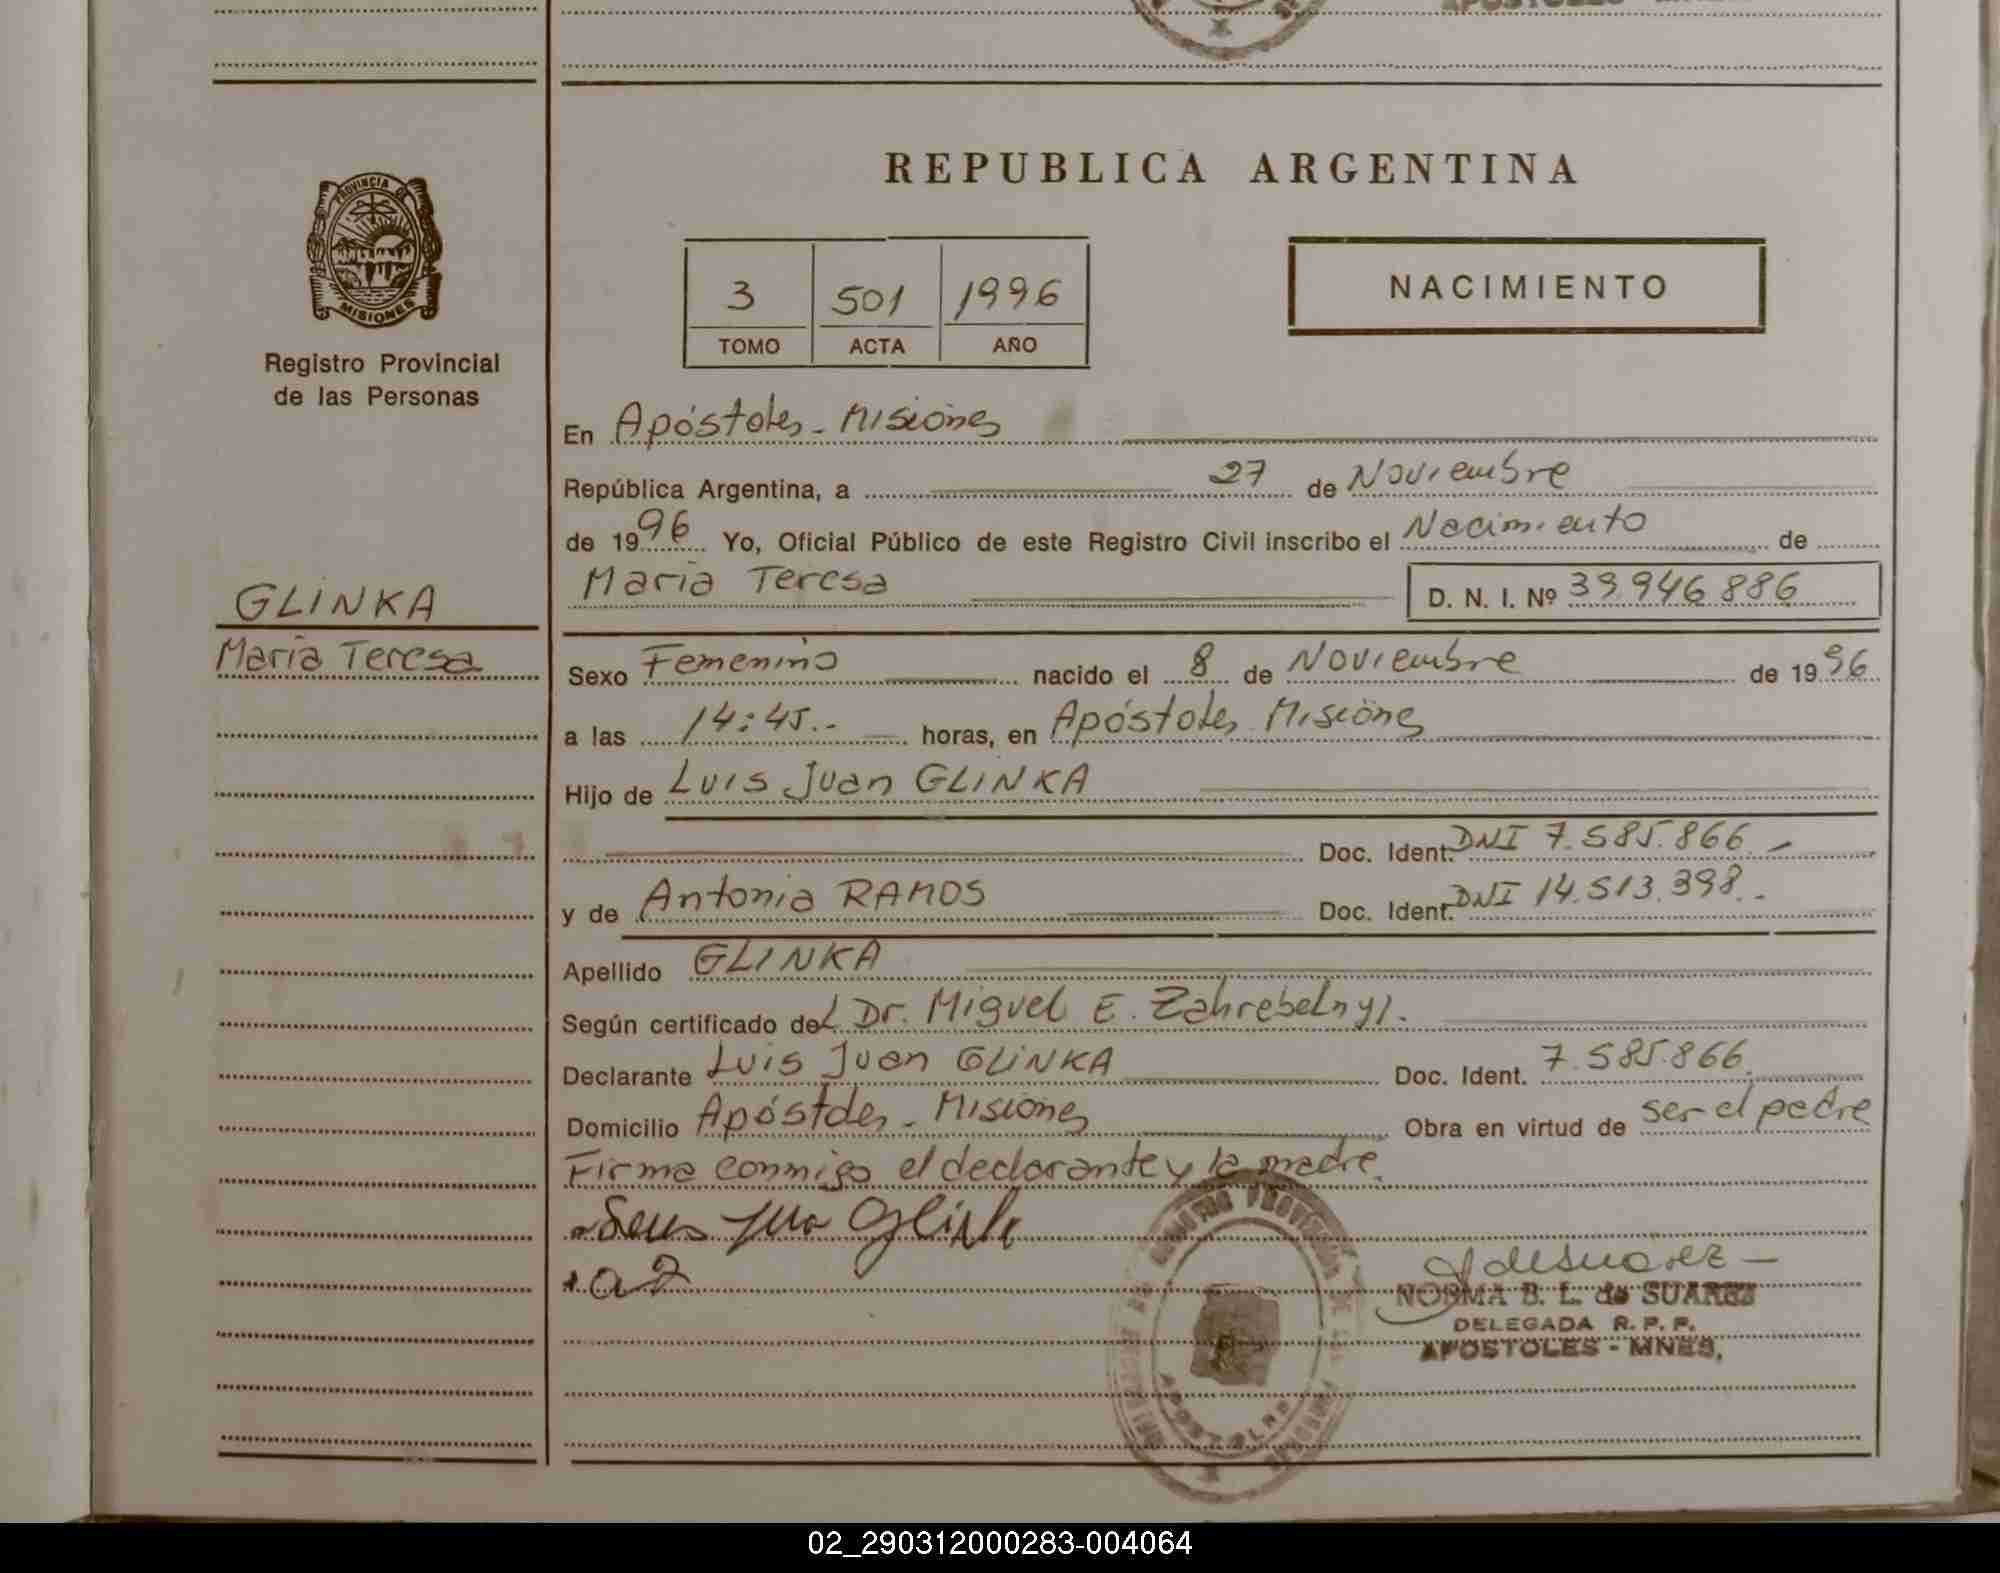 REPUBLICA ARGENTINA
PROVINCIA DE
MISIONES
Registro Provincial
de las Personas
3 501 1996
TOMO ACTA AÑO
NACIMIENTO
En Apóstoles - Misiones
República Argentina, a 27 de Noviembre
de 1996 Yo, Oficial Público de este Registro Civil inscribo el Nacimiento de
Maria Teresa D. N. I. Nº 39.946.886
GLINKA
Maria Teresa
Sexo Femenino nacido el 8 de Noviembre de 1996
a las 14:45.- horas, en Apóstoles Misiones
Hijo de Luis Juan GLINKA
Doc. Ident. DNI 7.585.866.-
y de Antonia RAMOS Doc. Ident. DNI 14.513.398.-
Apellido GLINKA
Según certificado del Dr. Miguel E. Zahrebelnyj.
Declarante Luis Juan GLINKA Doc. Ident. 7.585.866.
Domicilio Apóstoles - Misiones Obra en virtud de ser el padre
Firma conmigo el declarante y la madre.
NORMA B. L. de SUAREZ
DELEGADA R. P. P.
APOSTOLES - MNES.
02_290312000283-004064